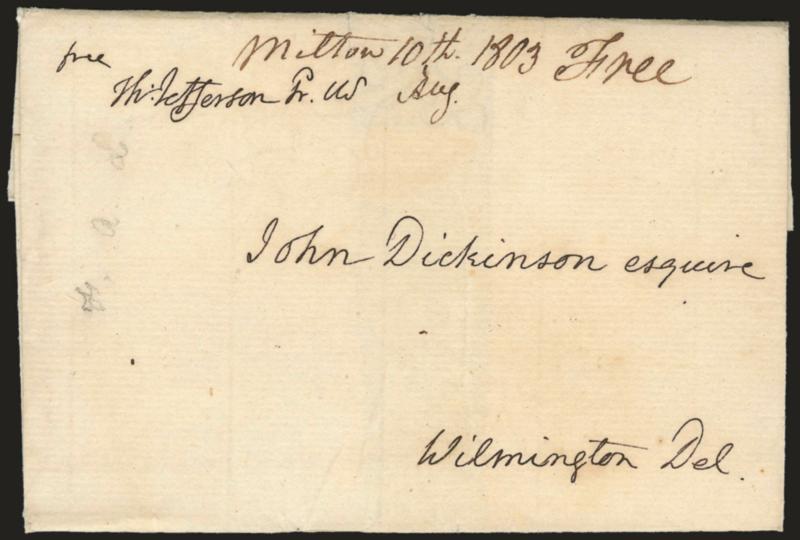 Milton 10th. 1803 Free
Aug.
free
Th: Jefferson Pr. US
John Dickinson esquire
Wilmington Del.